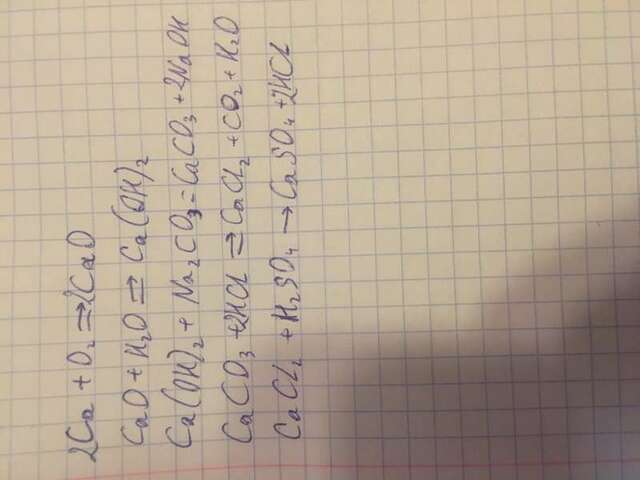 2Ca + O₂ ⇒ 2CaO
CaO + H₂O ⇒ Ca(OH)₂
Ca(OH)₂ + Na₂CO₃ = CaCO₃ + 2NaOH
CaCO₃ + 2HCl ⇒ CaCl₂ + CO₂ + H₂O
CaCl₂ + H₂SO₄ → CaSO₄ + 2HCl